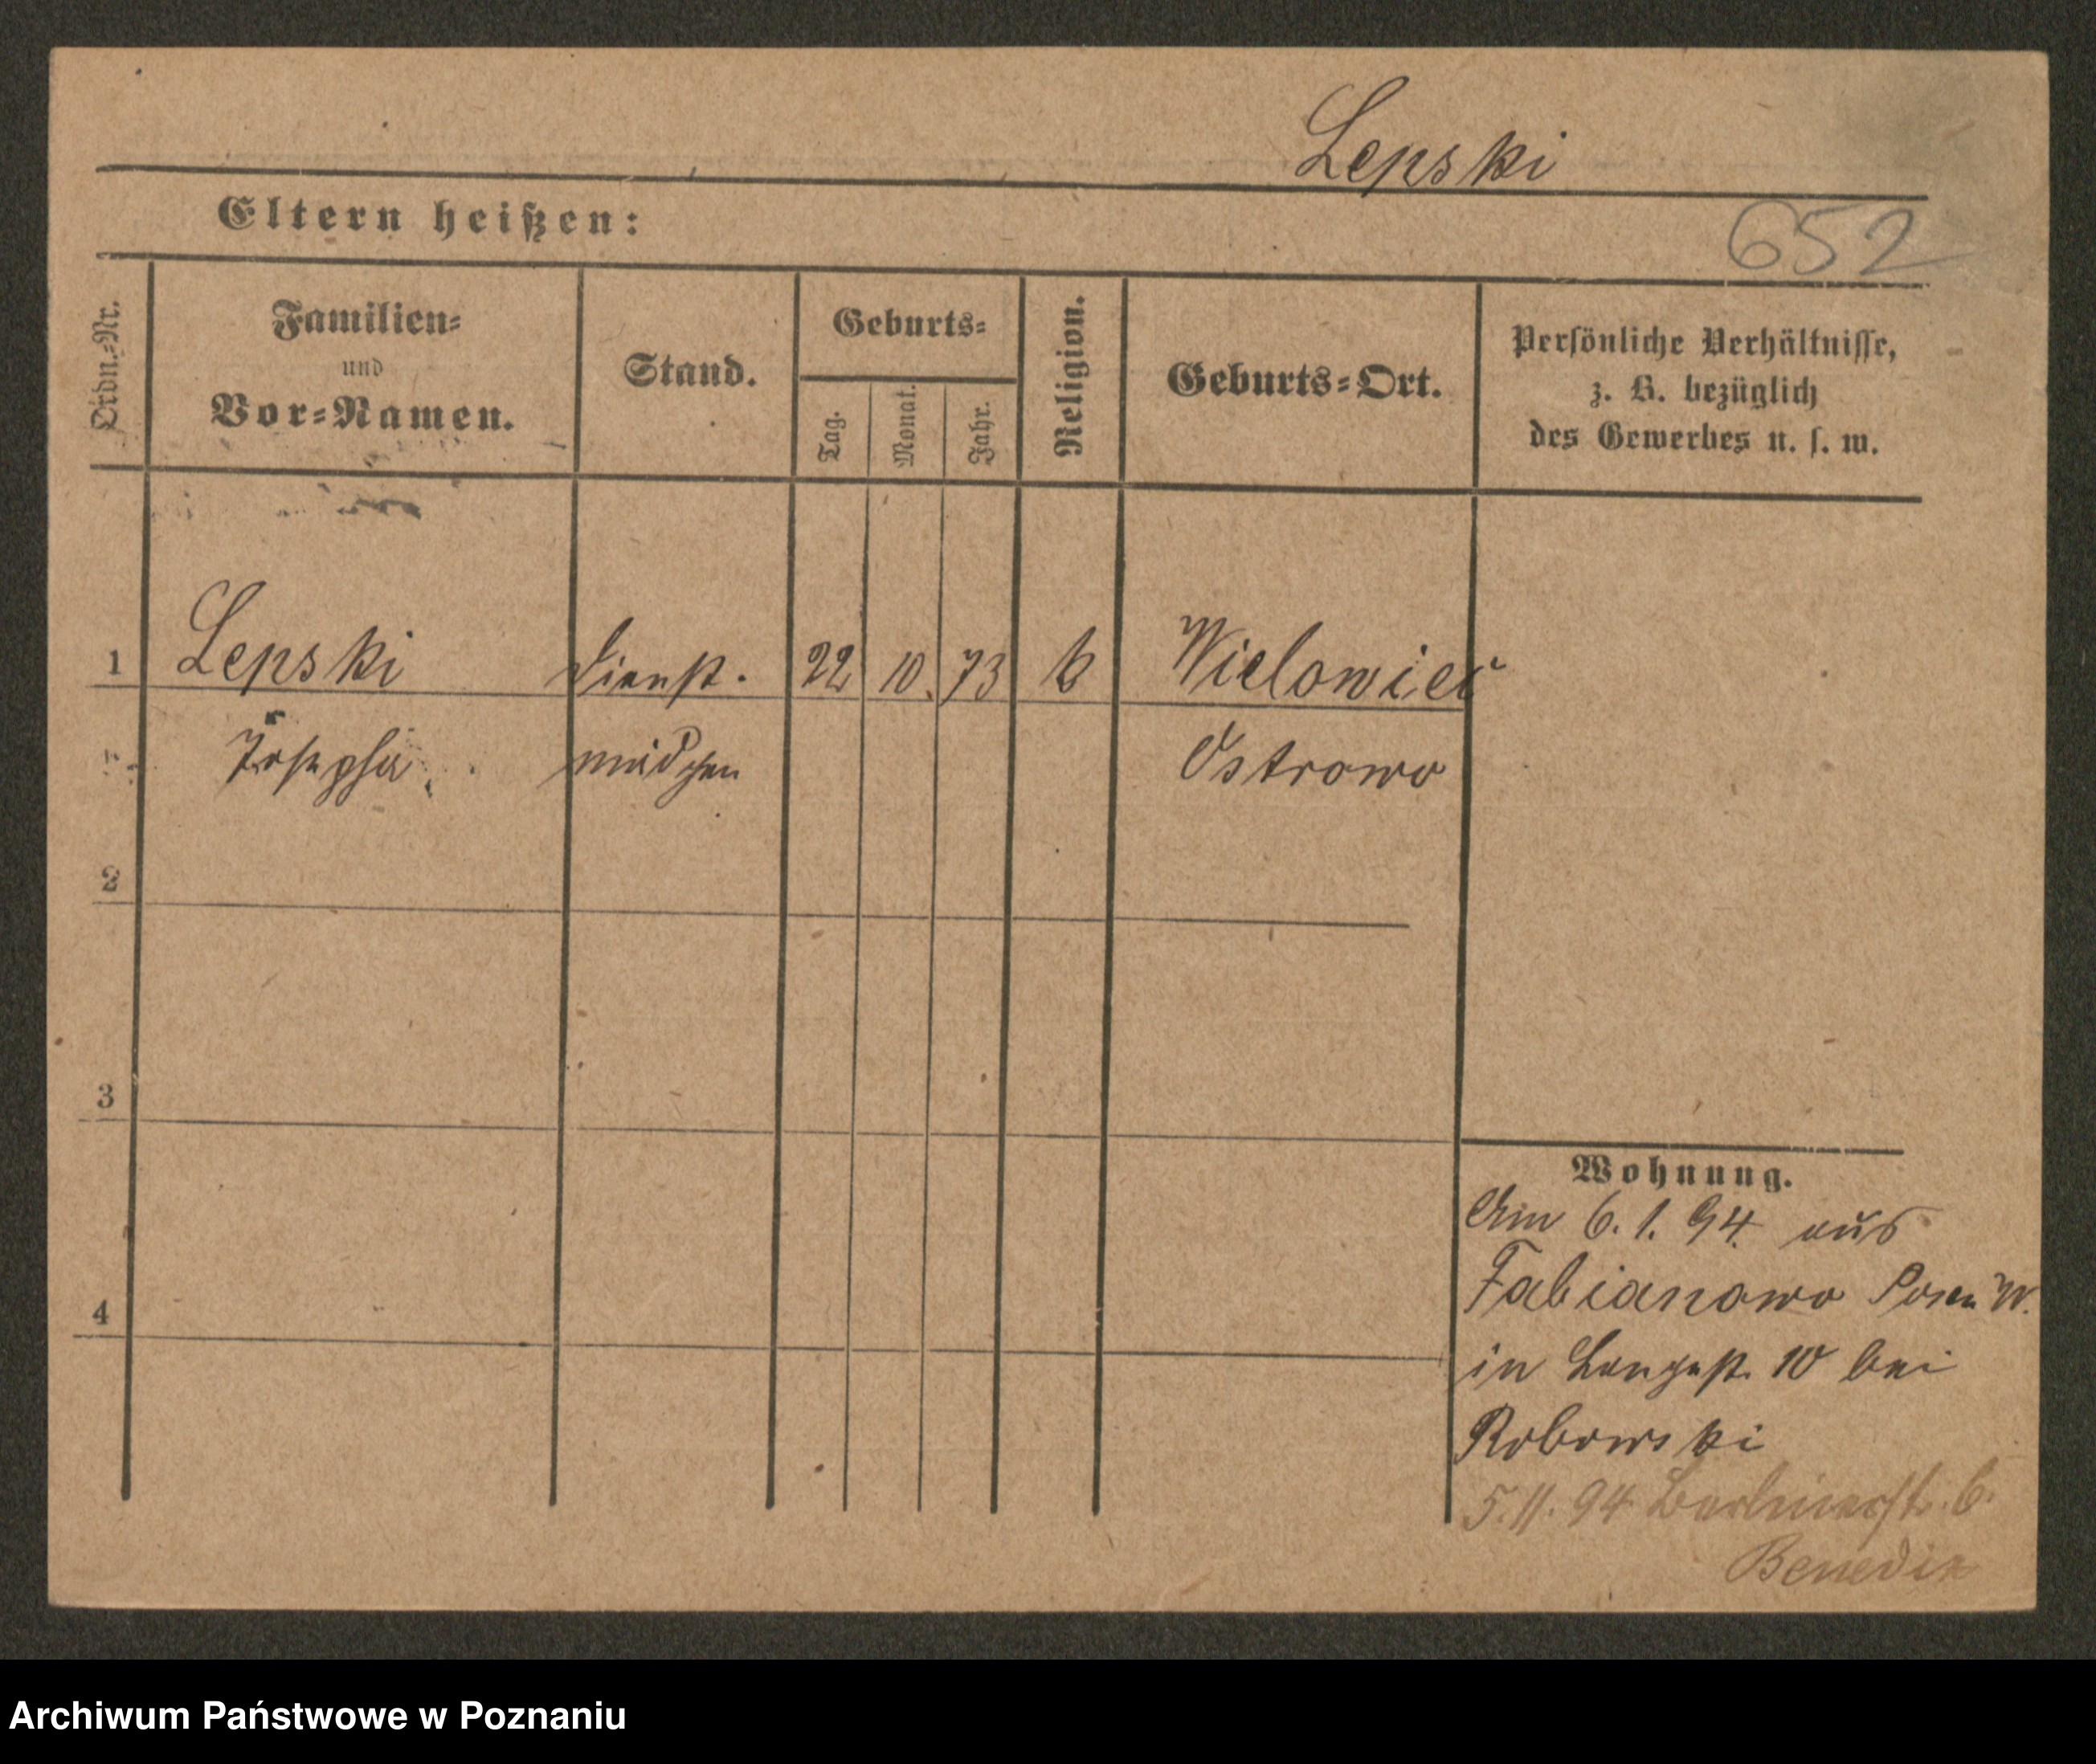 Lepski
Eltern heißen:
652
Ordn.-Nr.
Familien-
und
Vor-Namen.
Stand.
Geburts-
Tag.
Monat.
Jahr.
Religion.
Geburts-Ort.
Persönliche Verhältnisse,
z. B. bezüglich
des Gewerbes u. s. w.
1 Lepski Dienst. 22 10. 73 k Wielowieś
Josepha mädchen Ostrowo
2
3
Wohnung.
Am 6. 1. 94. aus
Fabianowo Posen W.
4
in Langest. 10 bei
Robowski
5.11.94 Berlinerstr. 6.
Benedix
Archiwum Państwowe w Poznaniu